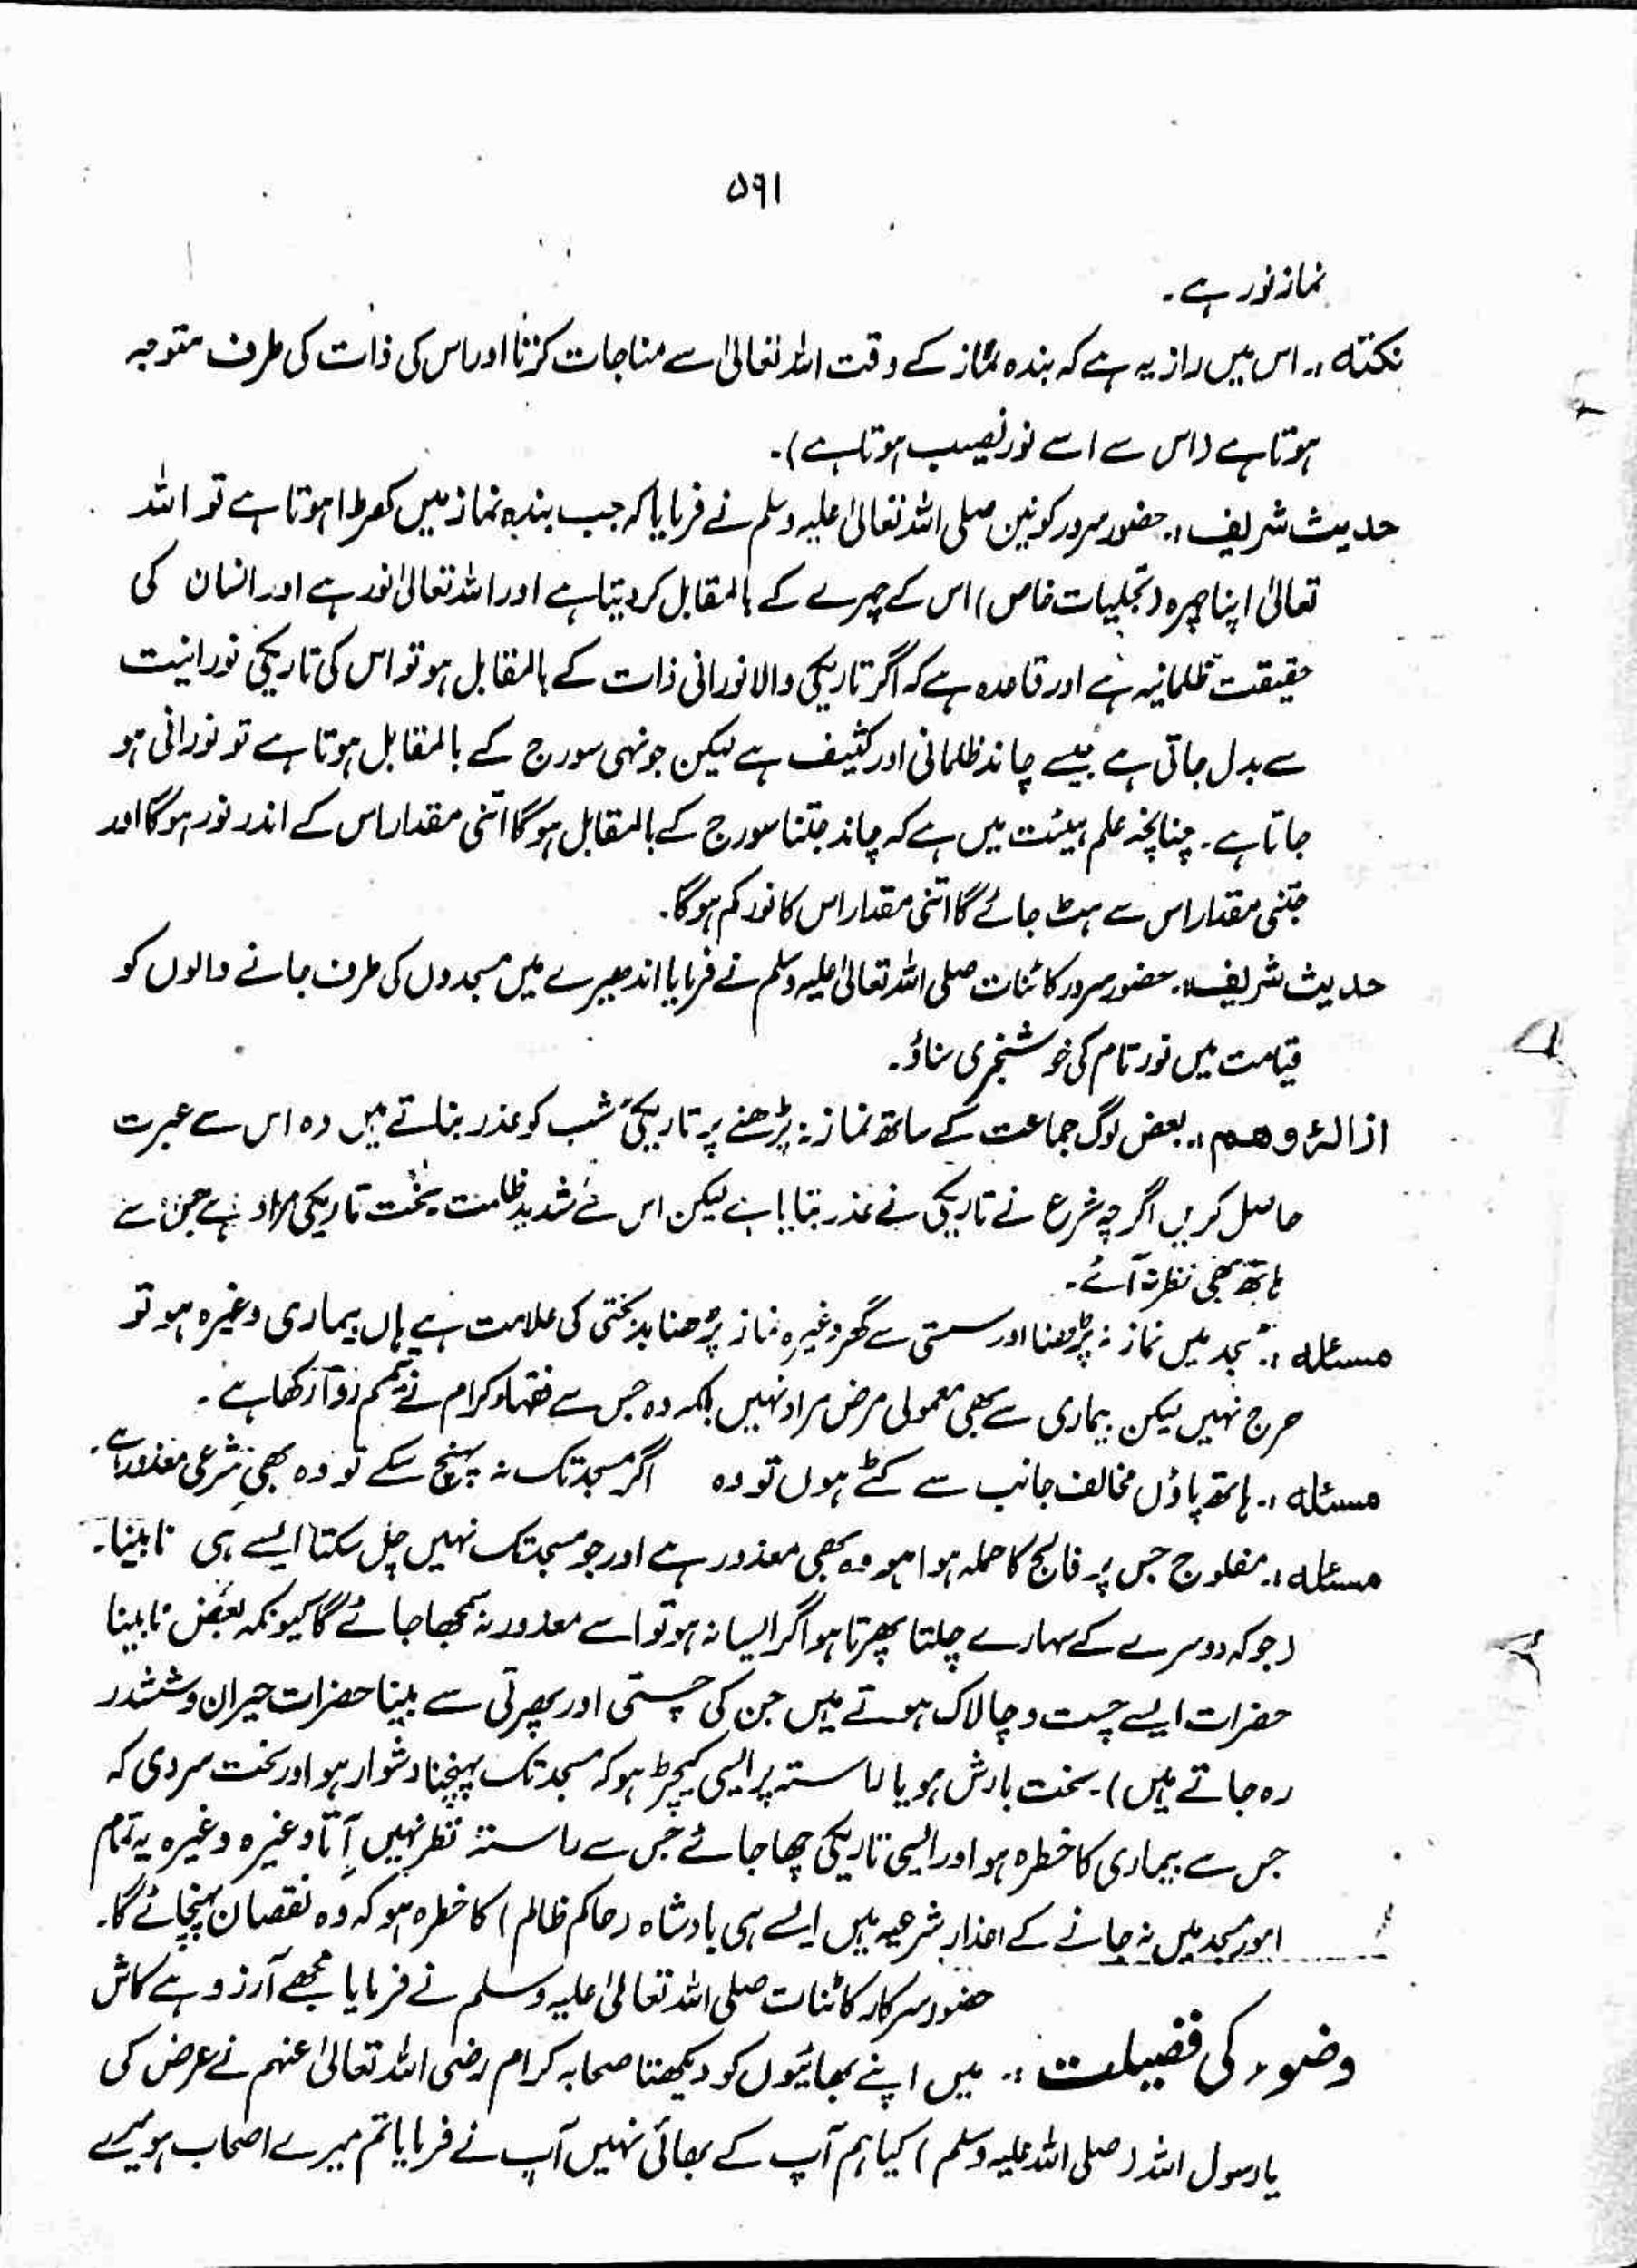 ۵۹۱
نماز نور ہے۔
نکتہ :۔ اس میں راز یہ ہے کہ بندہ نماز کے وقت اللہ تعالیٰ سے مناجات کرتا اور اس کی ذات کی طرف متوجہ
ہوتا ہے (اس سے اسے نور نصیب ہوتا ہے)۔
حدیث شریف :۔ حضور سرور کونین صلی اللہ تعالیٰ علیہ وسلم نے فرمایا کہ جب بندہ نماز میں کھڑا ہوتا ہے تو اللہ
تعالیٰ اپنا چہرہ (تجلیات خاص) اس کے چہرے کے بالمقابل کر دیتا ہے اور اللہ تعالیٰ نور ہے اور انسان کی
حقیقت ظلمانیہ ہے اور قاعدہ ہے کہ اگر تاریکی والا نورانی ذات کے بالمقابل ہو تو اس کی تاریکی نورانیت
سے بدل جاتی ہے جیسے چاند ظلمانی اور کثیف ہے لیکن جونہی سورج کے بالمقابل ہوتا ہے تو نورانی ہو
جاتا ہے۔ چنانچہ علم ہیئت میں ہے کہ چاند جتنا سورج کے بالمقابل ہوگا اتنی مقدار اس کے اندر نور ہوگا اور
جتنی مقدار اس سے ہٹ جائے گا اتنی مقدار اس کا نور کم ہوگا۔
حدیث شریف :۔ حضور سرور کائنات صلی اللہ تعالیٰ علیہ وسلم نے فرمایا اندھیرے میں مسجدوں کی طرف جانے والوں کو
قیامت میں نور تام کی خوشخبری سناؤ۔
ازالۂ وھم :۔ بعض لوگ جماعت کے ساتھ نماز نہ پڑھنے پر تاریکیٔ شب کو عذر بناتے ہیں وہ اس سے عبرت
حاصل کریں اگرچہ شرع نے تاریکی نے عذر بتایا ہے لیکن اس سے شدید ظلمت سخت تاریکی مراد ہے جس سے
ہاتھ بھی نظر نہ آئے۔
مسئلہ :۔ مسجد میں نماز نہ پڑھنا اور سستی سے گھر وغیرہ نماز پڑھنا بدبختی کی علامت ہے ہاں بیماری وغیرہ ہو تو
حرج نہیں لیکن بیماری سے بھی معمولی مرض مراد نہیں بلکہ وہ جس سے فقہاء کرام نے تیمم روا رکھا ہے۔
مسئلہ :۔ ہاتھ پاؤں مخالف جانب سے کٹے ہوں تو وہ اگر مسجد تک نہ پہنچ سکے تو وہ بھی شرعی معذور ہے۔
مسئلہ :۔ مفلوج جس پر فالج کا حملہ ہوا ہو وہ بھی معذور ہے اور جو مسجد تک نہیں چل سکتا ایسے ہی نابینا۔
(جو کہ دوسرے کے سہارے چلتا پھرتا ہو اگر ایسا نہ ہو تو اسے معذور نہ سمجھا جائے گا کیونکہ بعض نابینا
حضرات ایسے چست و چالاک ہوتے ہیں جن کی چستی اور پھرتی سے بینا حضرات حیران و ششدر
رہ جاتے ہیں)۔ سخت بارش ہو یا راستہ پر ایسی کیچڑ ہو کہ مسجد تک پہنچنا دشوار ہو اور سخت سردی کہ
جس سے بیماری کا خطرہ ہو اور ایسی تاریکی چھا جائے جس سے راستہ نظر نہیں آتا وغیرہ وغیرہ یہ تمام
امور مسجد میں نہ جانے کے اعذار شرعیہ ہیں ایسے ہی بادشاہ (حاکم ظالم) کا خطرہ ہو کہ وہ نقصان پہنچائے گا۔
حضور سرکار کائنات صلی اللہ تعالیٰ علیہ وسلم نے فرمایا مجھے آرزو ہے کاش
وضوء کی فضیلت :۔ میں اپنے بھائیوں کو دیکھتا صحابہ کرام رضی اللہ تعالیٰ عنہم نے عرض کی
یا رسول اللہ (صلی اللہ علیہ وسلم) کیا ہم آپ کے بھائی نہیں آپ نے فرمایا تم میرے اصحاب ہو میرے